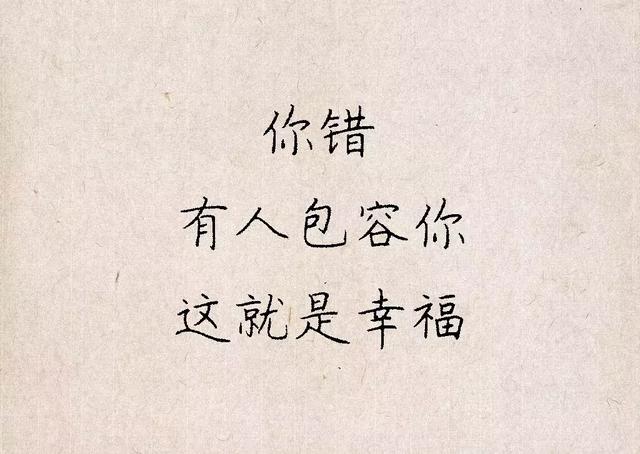 你错
有人包容你
这就是幸福